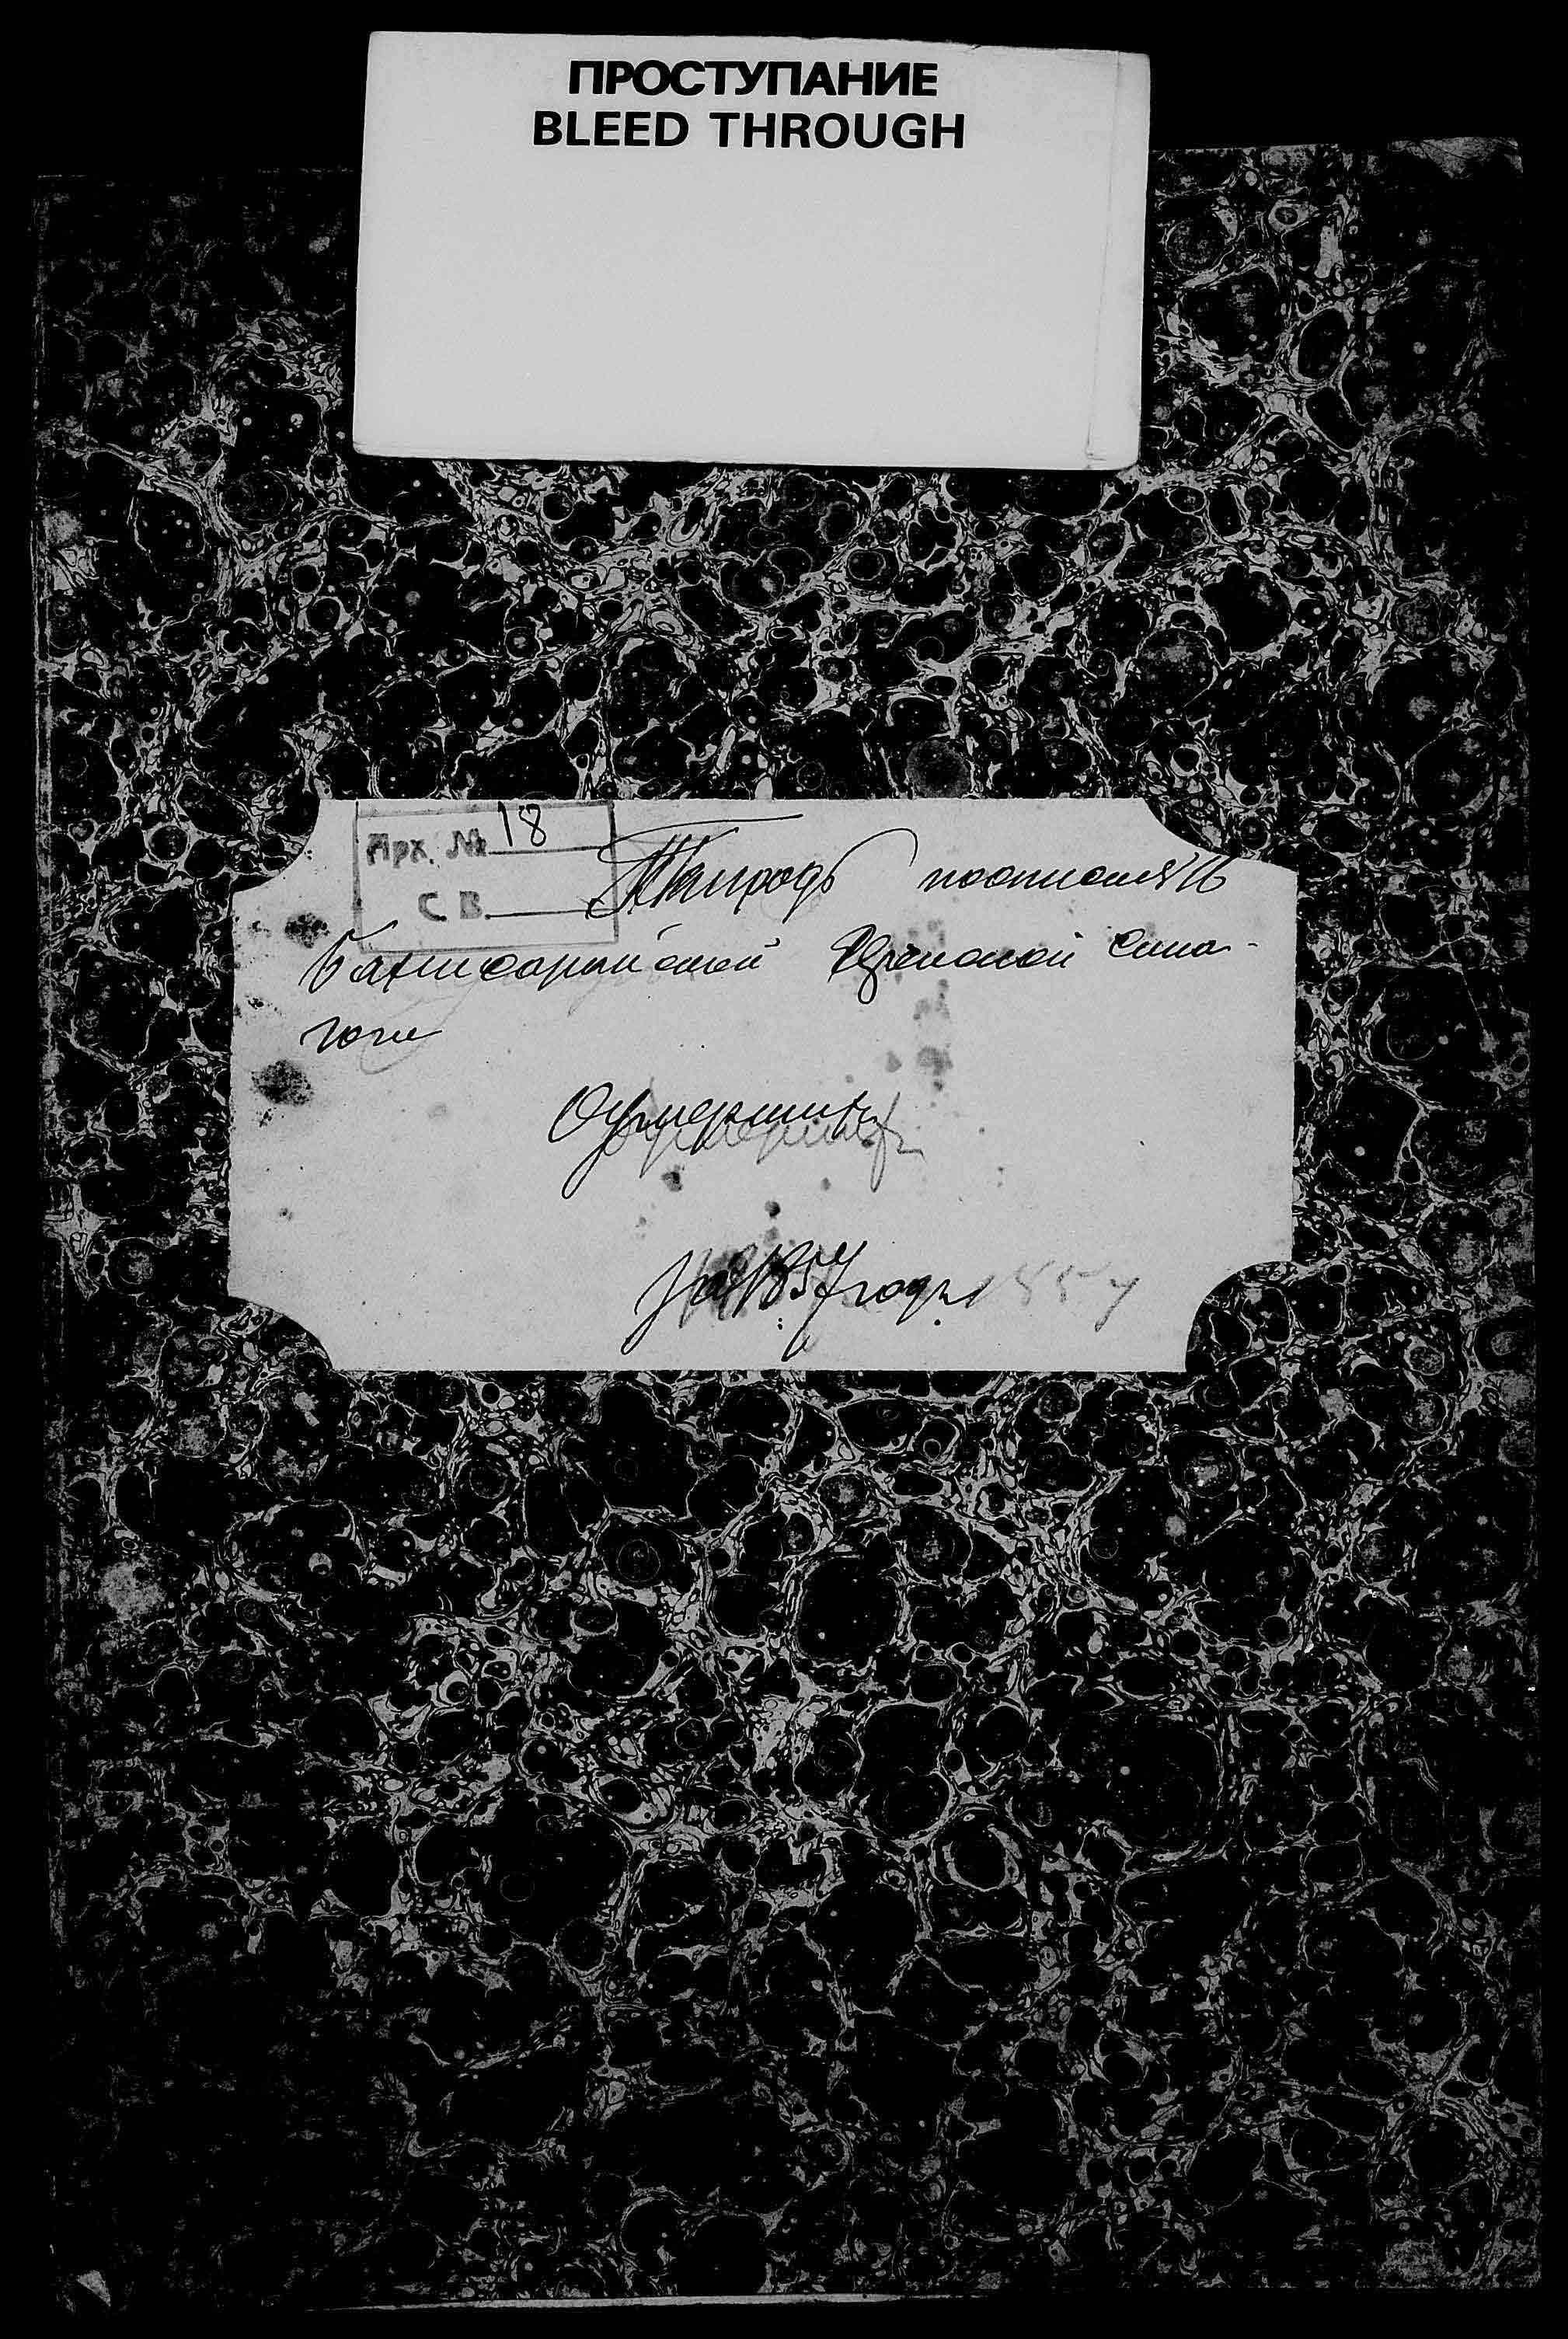 ПРОСТУПАНИЕ
BLEED THROUGH
Арх. № 18
С В.
Бахчисарайской Еврейской Сина-
гоги
О умершихъ
за 1857 годъ